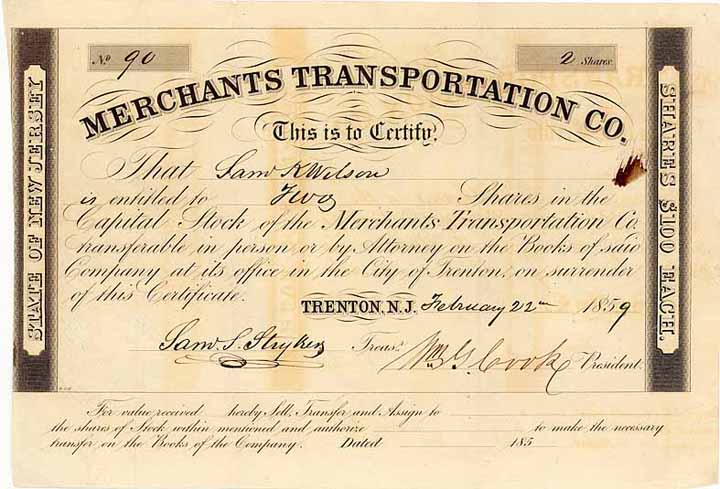 No. 90
2 Shares
MERCHANTS TRANSPORTATION CO.
This is to Certify,
That Saml K Wilson
is entitled to Two Shares in the
Capital Stock of the Merchants Transportation Co.
transferable in person or by Attorney on the Books of said
Company at its office in the City of Trenton, on surrender
of this Certificate.
TRENTON, N.J. February 22nd 1859
Saml S. Stryker Treasr. Wm G. Cook President.
STATE OF NEW JERSEY
SHARES $100 EACH.
For value received hereby Sell, Transfer and Assign to
the shares of Stock within mentioned and authorize to make the necessary
transfer on the Books of the Company. Dated 185